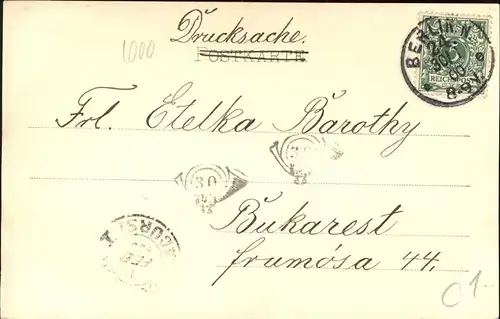 Drucksache.
POSTKARTE
1000
BERLIN.N.
REICHSPOST
8-9V.
Frl. Etelka Barothy
30
30
Bukarest
frumósa 44.
FEB
C1-